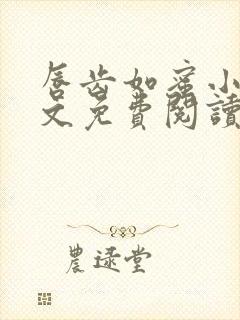 唇齿如蜜小
文免費閱讀
農逯堂